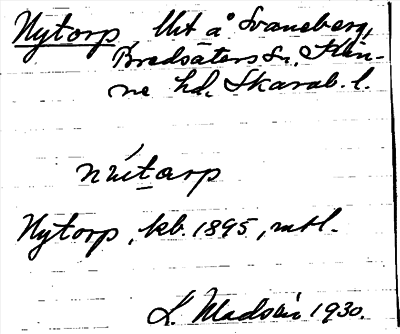 Nytorp, lht å Svaneberg,
Bredsäters sn, Kin-
ne hd, Skarab. l.
nýtarp
Nytorp, kb. 1895, mtl.
1930.